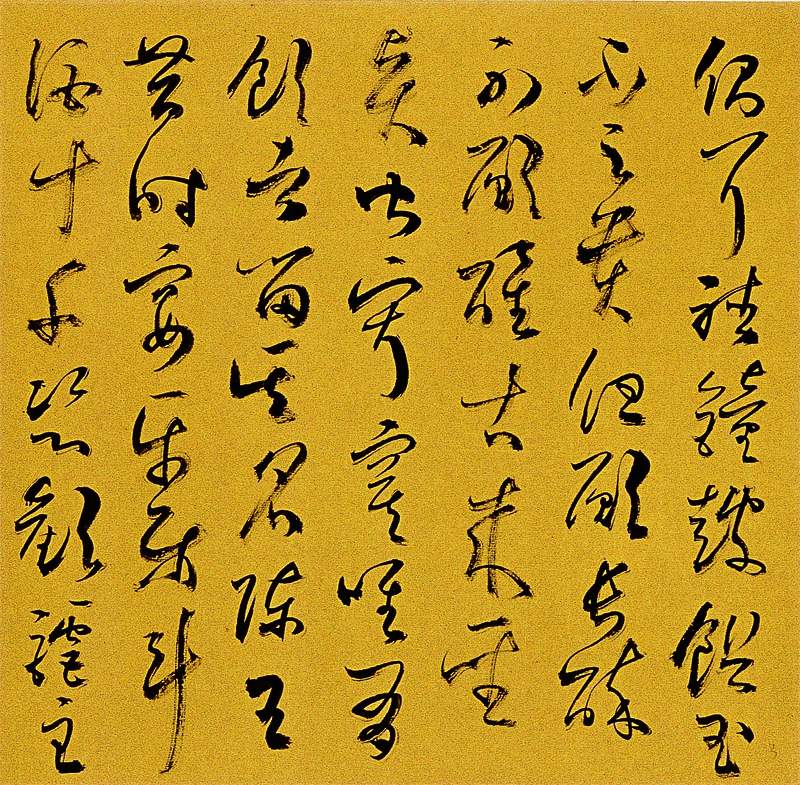 側耳聽鐘鼓饌玉
不足貴但願長醉
不願醒古來聖
賢皆寂寞唯有
飲者留其名陳王
昔時宴平樂斗
酒十千恣歡謔主